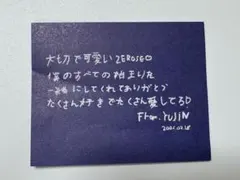 大切で可愛い ZEROSE
僕のすべての始まりを
一緒にしてくれてありがとう
たくさん好きでたくさん愛してる♡
From. YUJIN